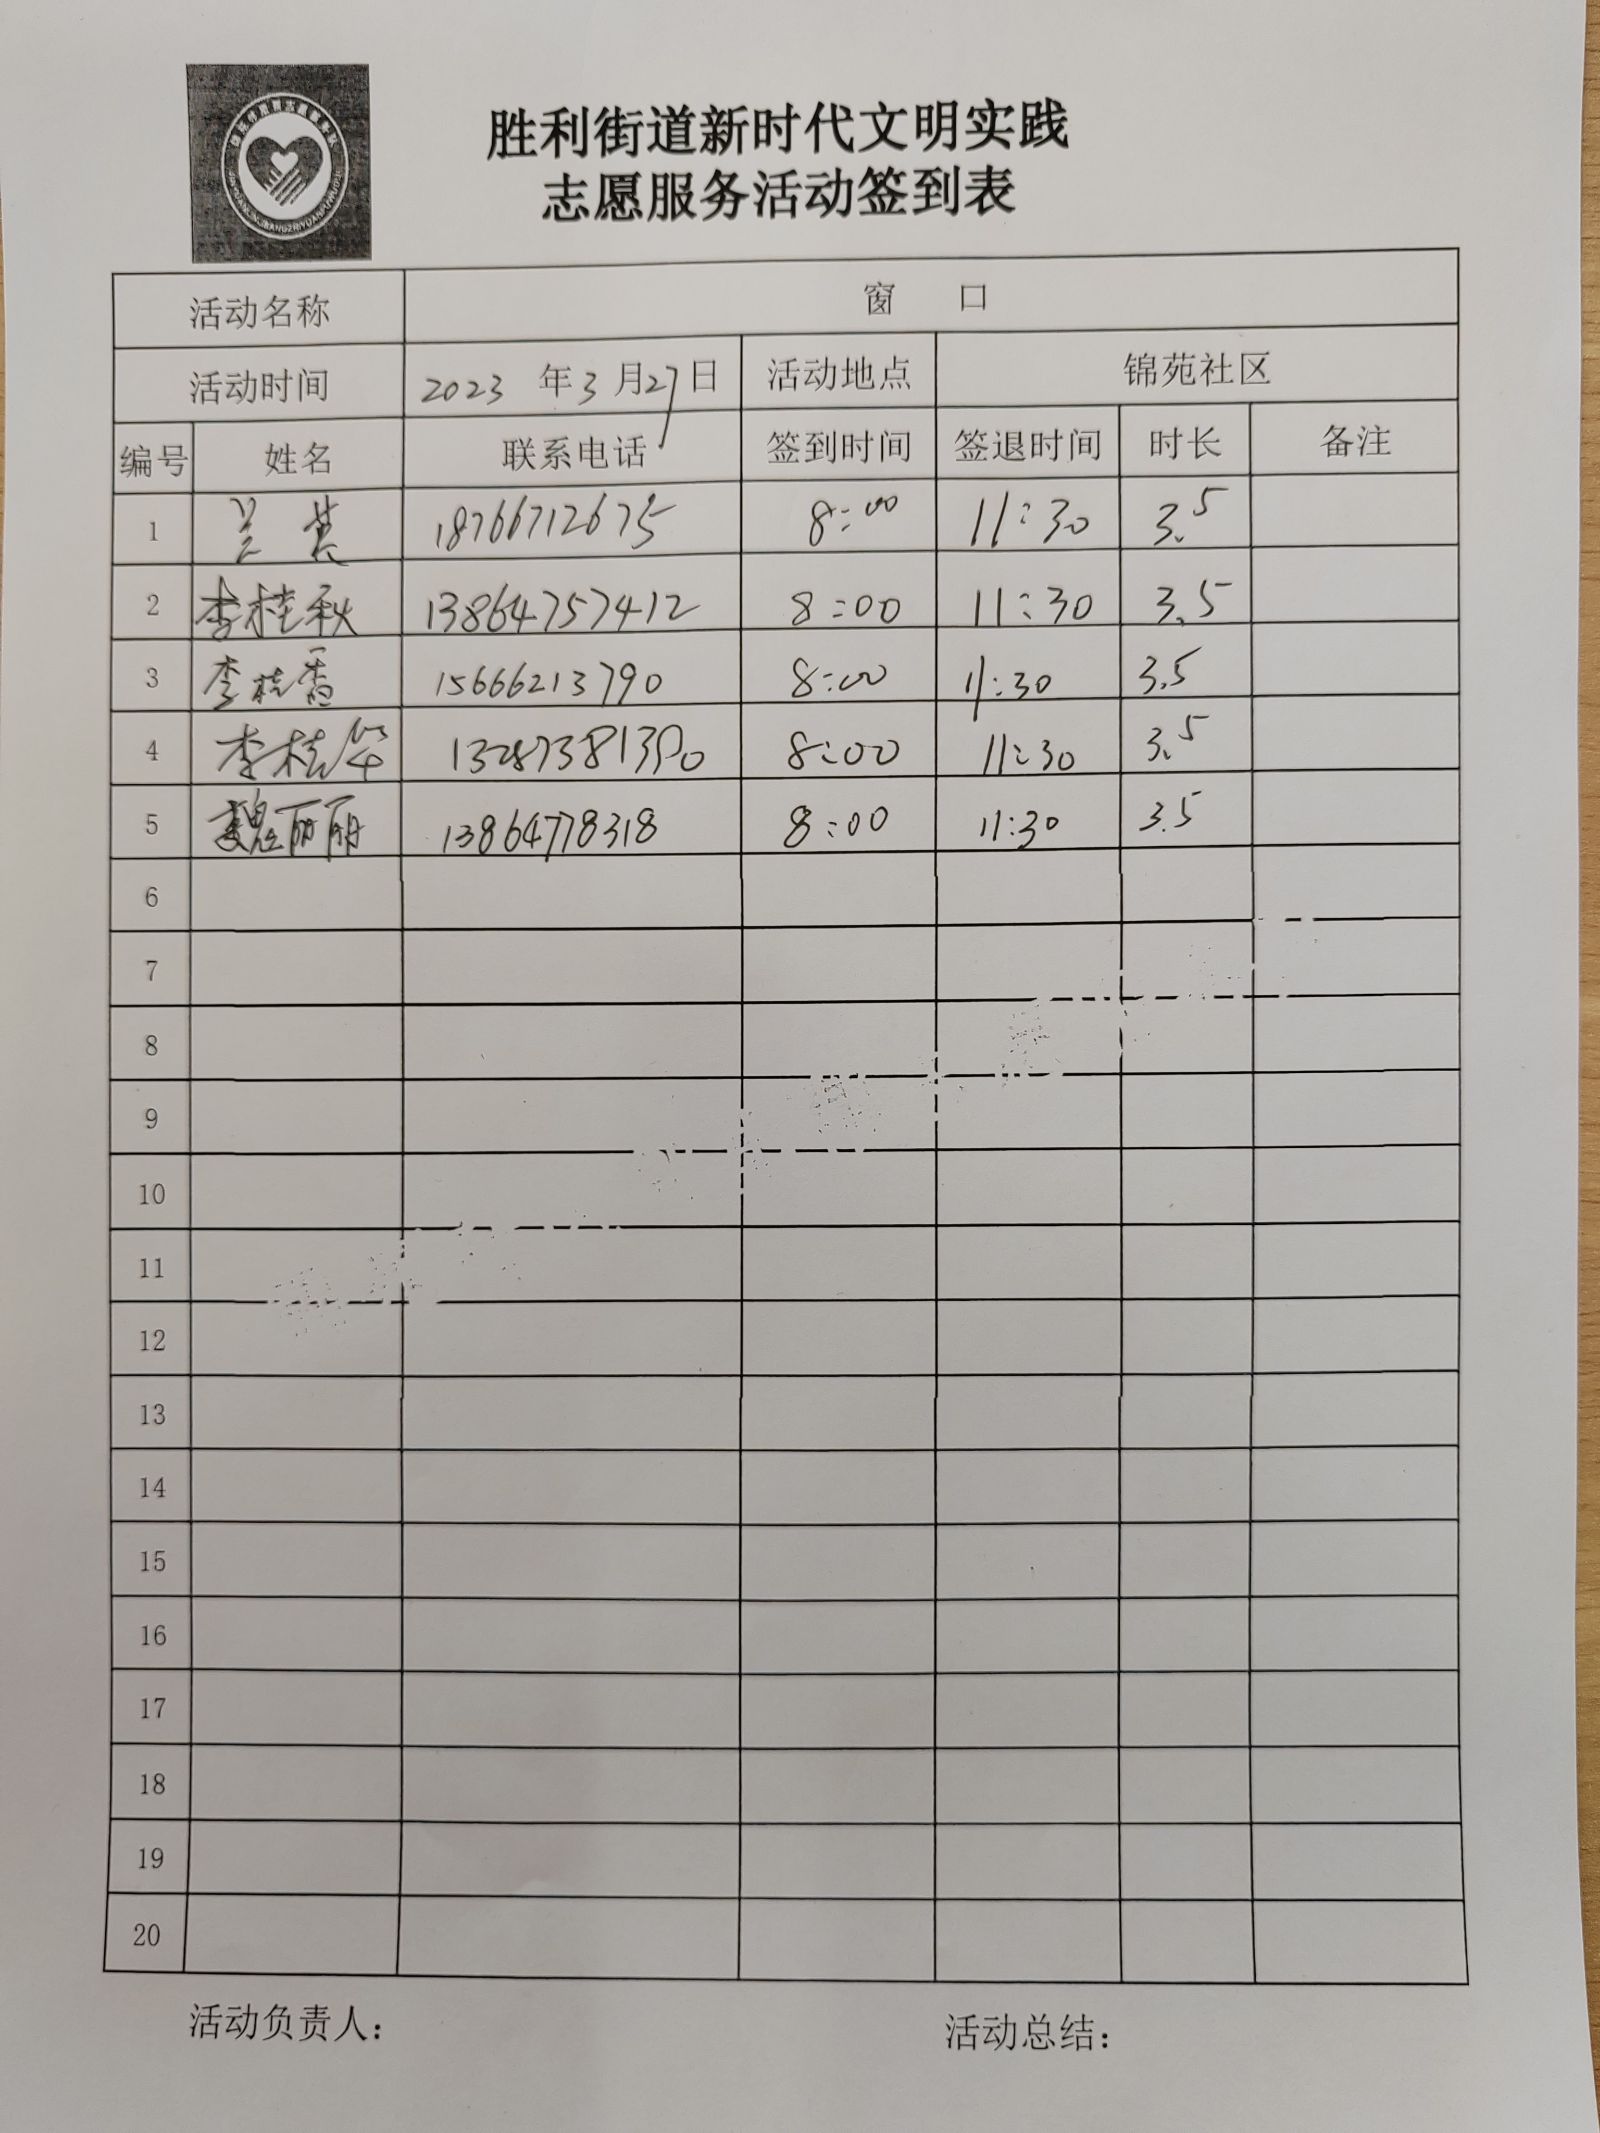 胜利街道新时代文明实践
志愿服务活动签到表
活动名称 窗 口
活动时间 2023 年 3 月 27 日 活动地点 锦苑社区
编号 姓名 联系电话 签到时间 签退时间 时长 备注
1 兰 18766712675 8:00 11:30 3.5
2 李桂秋 13864757412 8:00 11:30 3.5
3 李桂香 15666213790 8:00 11:30 3.5
4 李桂华 8:00 11:30 3.5
5 魏丽丽 13864778318 8:00 11:30 3.5
6
7
8
9
10
11
12
13
14
15
16
17
18
19
20
活动负责人: 活动总结: